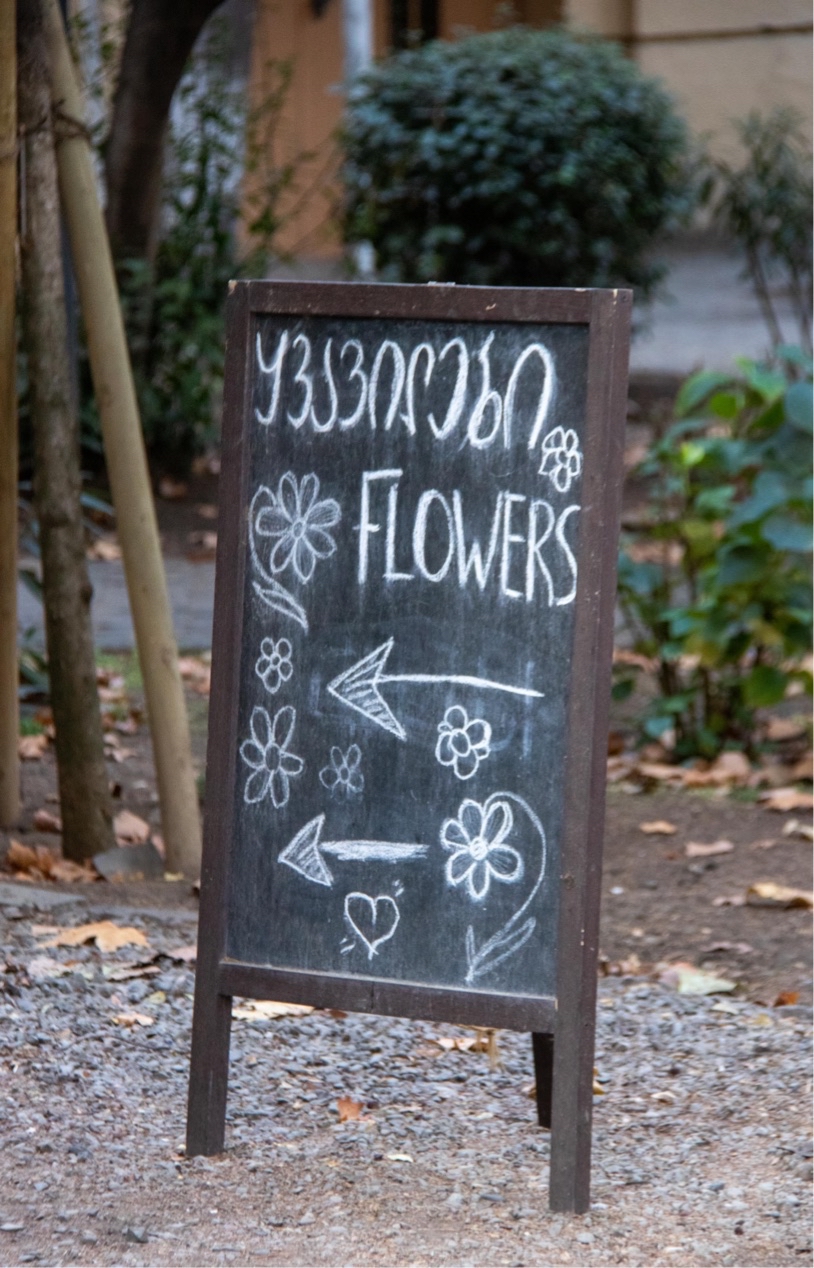 ყვავილები
FLOWERS